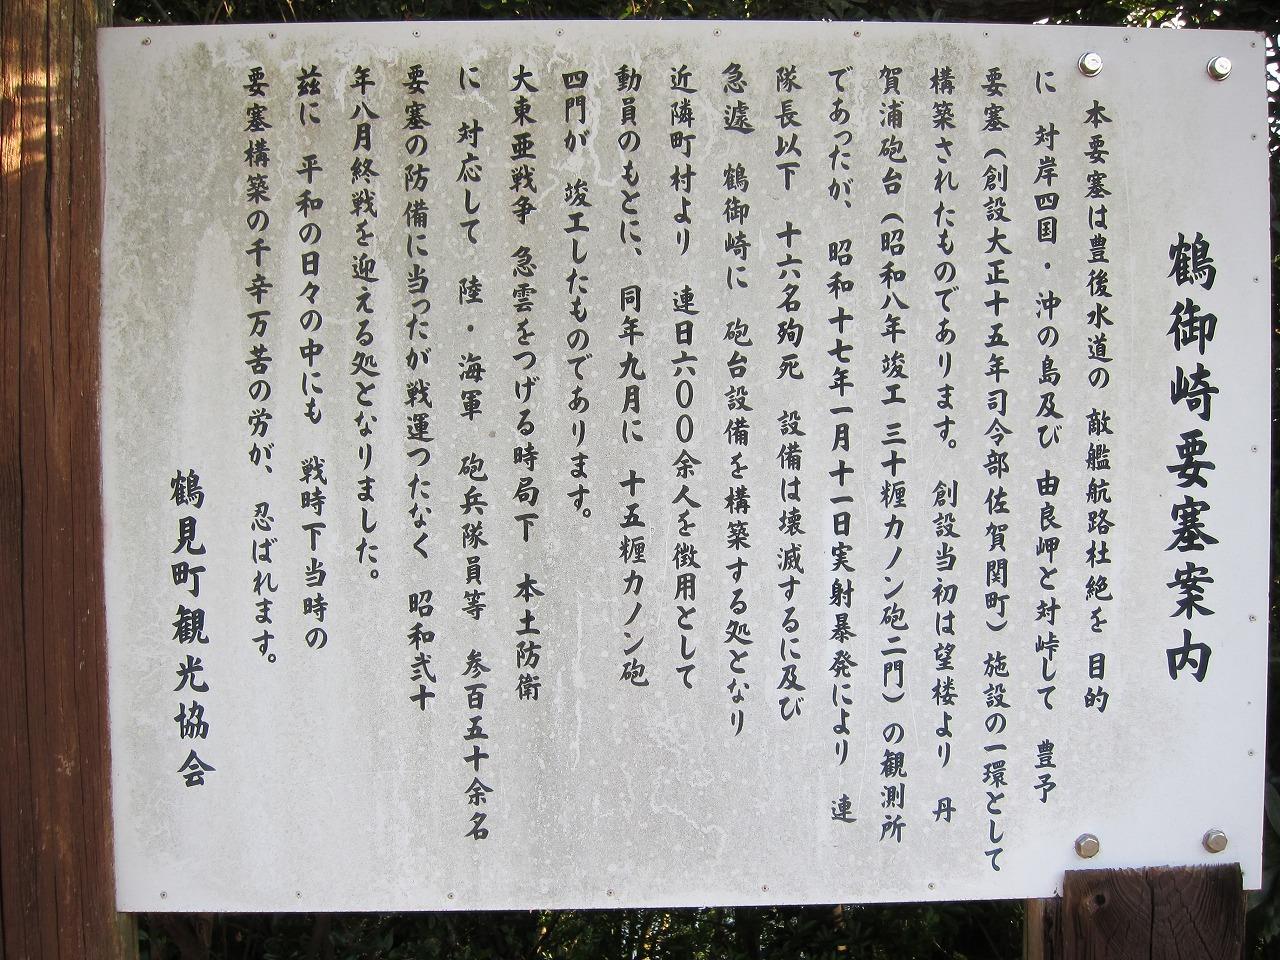 鶴御崎要塞案内
本要塞は豊後水道の 敵艦航路杜絶を 目的
に 対岸四国・沖の島及び 由良岬と対峠して 豊予
要塞(創設大正十五年司令部佐賀関町)施設の一環として
構築されたものであります。 創設当初は望楼より 丹
賀浦砲台(昭和八年竣工 三十糎カノン砲二門)の観測所
であったが、 昭和十七年一月十一日実射暴発により 連
隊長以下 十六名殉死 設備は壊滅するに及び
急遽 鶴御崎に 砲台設備を構築する処となり
近隣町村より 連日六〇〇余人を徴用として
動員のもとに、 同年九月に 十五糎カノン砲
四門が 竣工したものであります。
大東亜戦争 急雲をつげる時局下 本土防衛
に 対応して 陸・海軍 砲兵隊員等 参百五十余名
要塞の防備に当ったが戦運つたなく 昭和弐十
年八月終戦を迎える処となりました。
茲に 平和の日々の中にも 戦時下当時の
要塞構築の千辛万苦の労が、 忍ばれます。
鶴見町観光協会